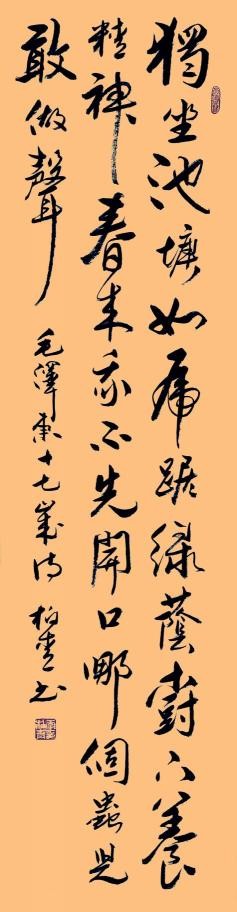 獨坐池塘如虎踞綠蔭樹下養
精神春來我不先開口哪個蟲兒
敢做聲 毛澤東十七歲诗 柏书